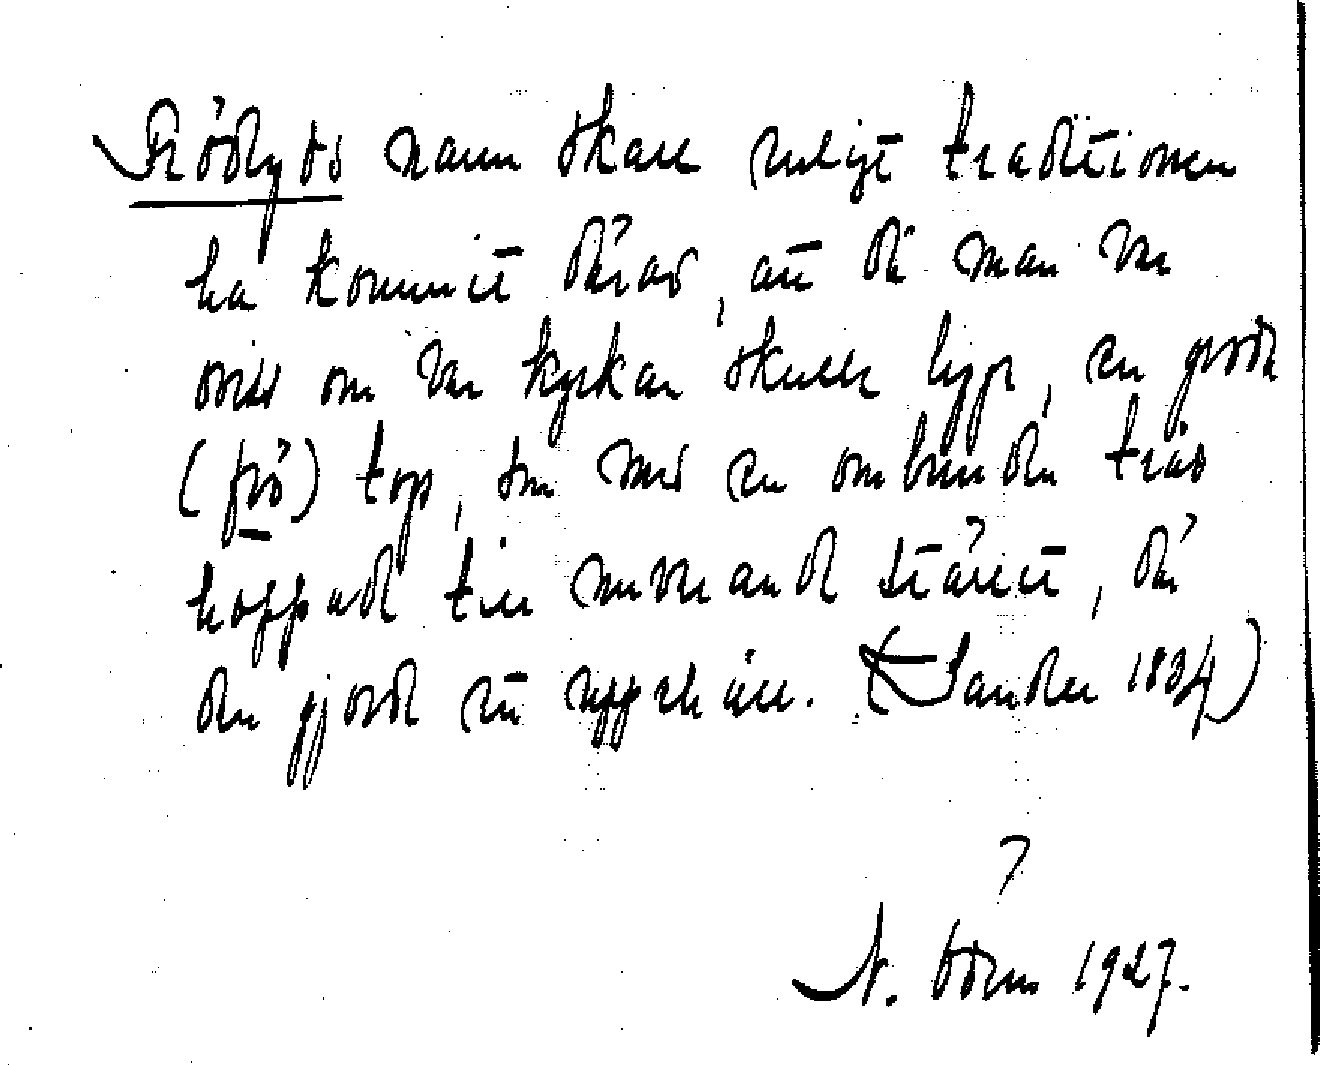 Frödeyds namn skall enligt traditionen
ha kommit därav, att då man var
oviss om var kyrkan skulle ligga, en groda
(frö) tog, som med en ombunden tråd
hoppade till nuvarande stället, där
den gjorde ett uppehåll. (Sander 1834)
N. Ödeen 1927.